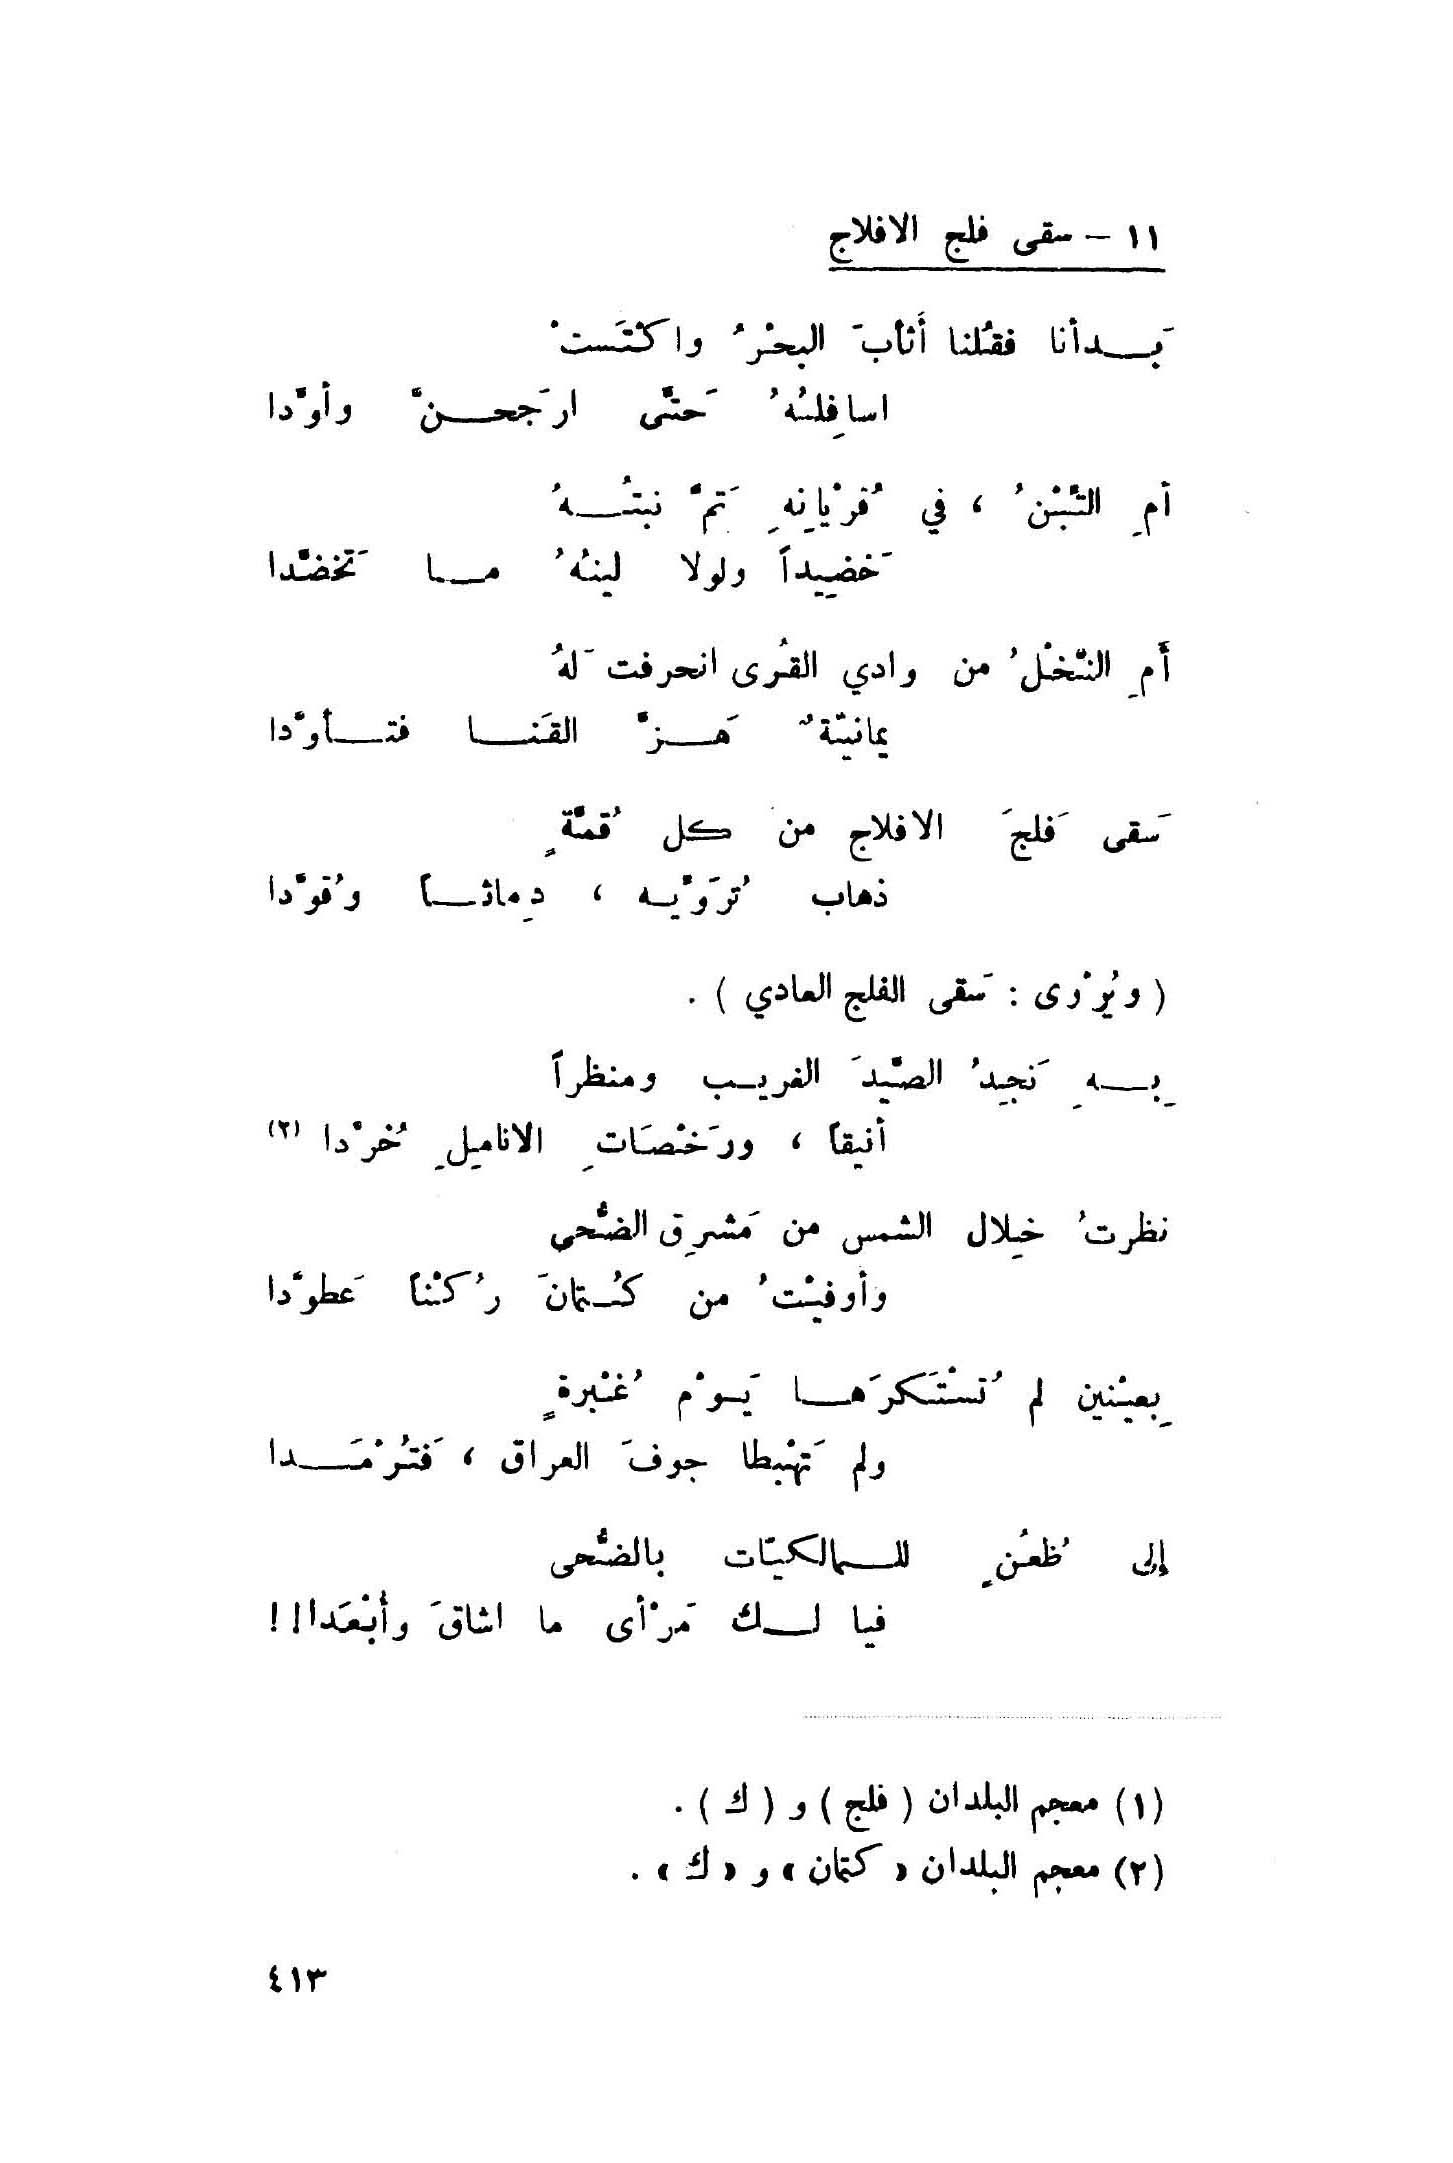 ١١ – سقى فلج الافلاج
بَدأنا فقُلنا أَثأبَ البحْرُ واكْتَست
اسافِلُهُ حَتّى ارجَحنَّ وأوَّدا
أمِ التِّبْنُ ، في قُرْيانِهِ تَمَّ نبتُهُ
خَضِيداً ولولا لينُهُ ما تَخضَّدا
أَمِ النَّخْلُ من وادي القُرى انحرفت لَهُ
يمانيّةٌ هَزَّ القَنا فتأوَّدا
سَقى فَلجَ الافلاج من كل قُمّةٍ
ذهاب تُرَوّيه ، دِماثاً وقُوَّدا
( ويُرْوى : سَقى الفلج العادي ) .
بِهِ نَجِدُ الصَّيدَ الغريب ومنظراً
أنيقاً ، ورَخْصَاتِ الانامِلِ خُرَّدا (٢)
نظرتُ خِلال الشمس من مَشرِق الضُّحى
وأوفيْتُ من كُتمانَ رُكْناً عَطوَّدا
بِعيْنين لم تُسْتَكرَها يَوْم غُبْرةٍ
ولم تَهْبِطا جوفَ العراق ، فَتُرْمَدا
إلى ظُعُنٍ للمالكيّات بالضُّحى
فيا لك مَرْأى ما اشاقَ وأبْعَدا!!
(١) معجم البلدان ( فلج ) و ( ك ) .
(٢) معجم البلدان « كتمان » و « ك » .
٤١٣